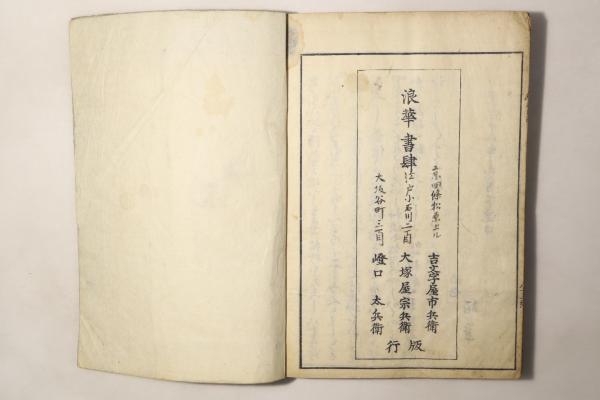 浪華書肆
吉文字屋市兵衛
江戸小石川二丁目
大塚屋宗兵衛
大坂谷町三丁目
口太兵衛
版行